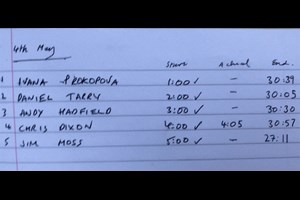 4th May
Start Actual End.
1 IVANA PROKOPOVA 1:00 ✓ – 30:39
2 DANIEL TARRY 2:00 ✓ – 30:05
3 ANDY HADFIELD 3:00 ✓ – 30:30
4 CHRIS DIXON 4:00 ✓ 4:05 30:57
5 SIM MOSS 5:00 ✓ – 27:11